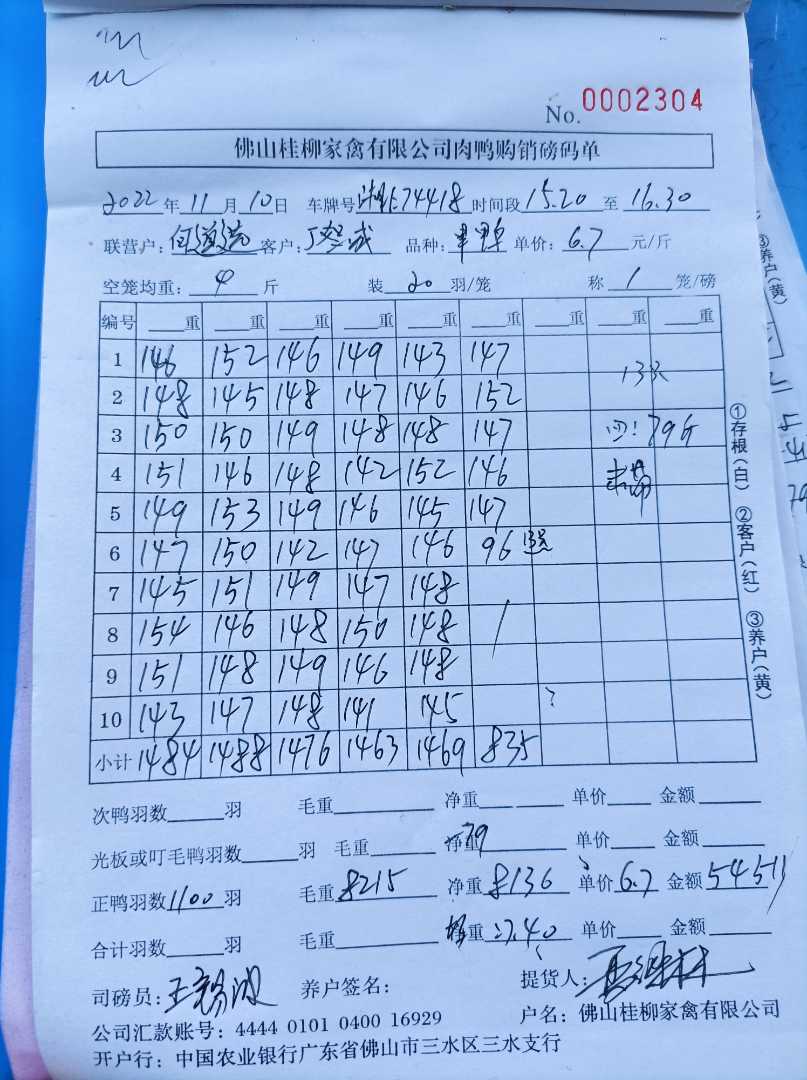 No. 0002304
佛山桂柳家禽有限公司肉鸭购销磅码单
2022年11月10日 车牌号 74418 时间段 15.20 至 16.30
联营户: 客户: 品种: 单价: 6.7 元/斤
空笼均重: 4 斤 装 20 羽/笼 称 1 笼/磅
编号 重 重 重 重 重 重 重 重
1 146 152 146 149 143 147
2 148 145 148 147 146 152 13只
3 150 150 149 148 148 147 79斤
4 151 146 148 142 152 146
5 149 153 149 146 145 147
6 147 150 142 147 146 96
7 145 151 149 147 148
8 154 146 148 150 148
9 151 148 149 146 148
10 143 147 148 141 145
小计 1484 1488 1476 1463 1469 835
①存根(白) ②客户(红) ③养户(黄)
次鸭羽数 羽 毛重 净重 单价 金额
光板或叮毛鸭羽数 羽 毛重 净重 79 单价 金额
正鸭羽数 1100 羽 毛重 8215 净重 8136 单价 6.7 金额 54511
合计羽数 羽 毛重 重 7.40 单价 金额
司磅员: 养户签名: 提货人:
公司汇款账号: 4444 0101 0400 16929 户名: 佛山桂柳家禽有限公司
开户行: 中国农业银行广东省佛山市三水区三水支行
③养户(黄)